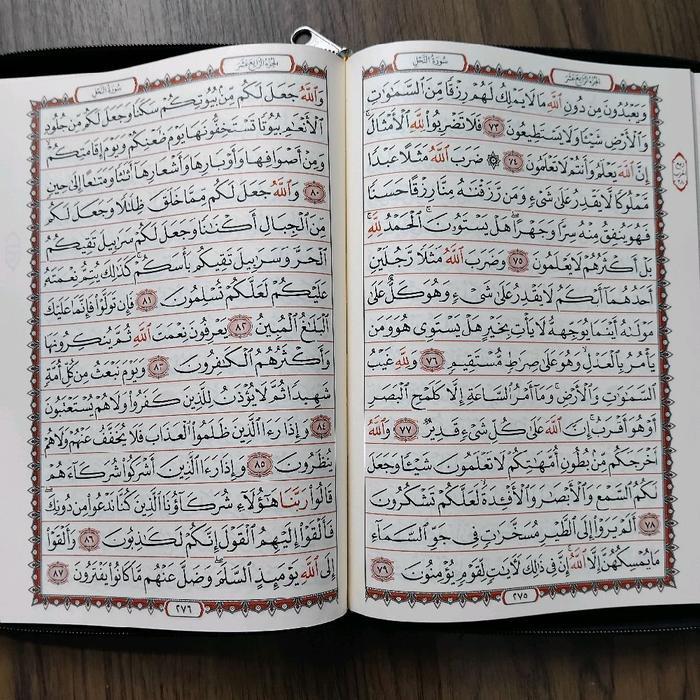 الجزء الرابع عشر
سورة النحل
وَيَعْبُدُونَ مِن دُونِ ٱللَّهِ مَا لَا يَمْلِكُ لَهُمْ رِزْقًا مِّنَ ٱلسَّمَٰوَٰتِ
وَٱلْأَرْضِ شَيْـًٔا وَلَا يَسْتَطِيعُونَ ٧٣ فَلَا تَضْرِبُوا۟ لِلَّهِ ٱلْأَمْثَالَ
إِنَّ ٱللَّهَ يَعْلَمُ وَأَنتُمْ لَا تَعْلَمُونَ ٧٤ ۞ ضَرَبَ ٱللَّهُ مَثَلًا عَبْدًا
مَّمْلُوكًا لَّا يَقْدِرُ عَلَىٰ شَىْءٍ وَمَن رَّزَقْنَٰهُ مِنَّا رِزْقًا حَسَنًا
فَهُوَ يُنفِقُ مِنْهُ سِرًّا وَجَهْرًا هَلْ يَسْتَوُۥنَ ٱلْحَمْدُ لِلَّهِ
بَلْ أَكْثَرُهُمْ لَا يَعْلَمُونَ ٧٥ وَضَرَبَ ٱللَّهُ مَثَلًا رَّجُلَيْنِ
أَحَدُهُمَآ أَبْكَمُ لَا يَقْدِرُ عَلَىٰ شَىْءٍ وَهُوَ كَلٌّ عَلَىٰ
مَوْلَىٰهُ أَيْنَمَا يُوَجِّههُّ لَا يَأْتِ بِخَيْرٍ هَلْ يَسْتَوِى هُوَ وَمَن
يَأْمُرُ بِٱلْعَدْلِ وَهُوَ عَلَىٰ صِرَٰطٍ مُّسْتَقِيمٍ ٧٦ وَلِلَّهِ غَيْبُ
ٱلسَّمَٰوَٰتِ وَٱلْأَرْضِ وَمَآ أَمْرُ ٱلسَّاعَةِ إِلَّا كَلَمْحِ ٱلْبَصَرِ
أَوْ هُوَ أَقْرَبُ إِنَّ ٱللَّهَ عَلَىٰ كُلِّ شَىْءٍ قَدِيرٌ ٧٧ وَٱللَّهُ
أَخْرَجَكُم مِّنۢ بُطُونِ أُمَّهَٰتِكُمْ لَا تَعْلَمُونَ شَيْـًٔا وَجَعَلَ
لَكُمُ ٱلسَّمْعَ وَٱلْأَبْصَٰرَ وَٱلْأَفْـِٔدَةَ لَعَلَّكُمْ تَشْكُرُونَ
٧٨ أَلَمْ يَرَوْا۟ إِلَى ٱلطَّيْرِ مُسَخَّرَٰتٍ فِى جَوِّ ٱلسَّمَآءِ
مَا يُمْسِكُهُنَّ إِلَّا ٱللَّهُ إِنَّ فِى ذَٰلِكَ لَءَايَٰتٍ لِّقَوْمٍ يُؤْمِنُونَ ٧٩
٢٧٥
الجزء الرابع عشر
سورة النحل
وَٱللَّهُ جَعَلَ لَكُم مِّنۢ بُيُوتِكُمْ سَكَنًا وَجَعَلَ لَكُم مِّن جُلُودِ
ٱلْأَنْعَٰمِ بُيُوتًا تَسْتَخِفُّونَهَا يَوْمَ ظَعْنِكُمْ وَيَوْمَ إِقَامَتِكُمْ
وَمِنْ أَصْوَافِهَا وَأَوْبَارِهَا وَأَشْعَارِهَآ أَثَٰثًا وَمَتَٰعًا إِلَىٰ حِينٍ
٨٠ وَٱللَّهُ جَعَلَ لَكُم مِّمَّا خَلَقَ ظِلَٰلًا وَجَعَلَ لَكُم
مِّنَ ٱلْجِبَالِ أَكْنَٰنًا وَجَعَلَ لَكُمْ سَرَٰبِيلَ تَقِيكُمُ
ٱلْحَرَّ وَسَرَٰبِيلَ تَقِيكُم بَأْسَكُمْ كَذَٰلِكَ يُتِمُّ نِعْمَتَهُۥ
عَلَيْكُمْ لَعَلَّكُمْ تُسْلِمُونَ ٨١ فَإِن تَوَلَّوْا۟ فَإِنَّمَا عَلَيْكَ
ٱلْبَلَٰغُ ٱلْمُبِينُ ٨٢ يَعْرِفُونَ نِعْمَتَ ٱللَّهِ ثُمَّ يُنكِرُونَهَا
وَأَكْثَرُهُمُ ٱلْكَٰفِرُونَ ٨٣ وَيَوْمَ نَبْعَثُ مِن كُلِّ أُمَّةٍ
شَهِيدًا ثُمَّ لَا يُؤْذَنُ لِلَّذِينَ كَفَرُوا۟ وَلَا هُمْ يُسْتَعْتَبُونَ
٨٤ وَإِذَا رَءَا ٱلَّذِينَ ظَلَمُوا۟ ٱلْعَذَابَ فَلَا يُخَفَّفُ عَنْهُمْ وَلَا هُمْ
يُنظَرُونَ ٨٥ وَإِذَا رَءَا ٱلَّذِينَ أَشْرَكُوا۟ شُرَكَآءَهُمْ
قَالُوا۟ رَبَّنَا هَٰٓؤُلَآءِ شُرَكَآؤُنَا ٱلَّذِينَ كُنَّا نَدْعُوا۟ مِن دُونِكَ
فَأَلْقَوْا۟ إِلَيْهِمُ ٱلْقَوْلَ إِنَّكُمْ لَكَٰذِبُونَ ٨٦ وَأَلْقَوْا۟
إِلَى ٱللَّهِ يَوْمَئِذٍ ٱلسَّلَمَ وَضَلَّ عَنْهُم مَّا كَانُوا۟ يَفْتَرُونَ ٨٧
٢٧٦